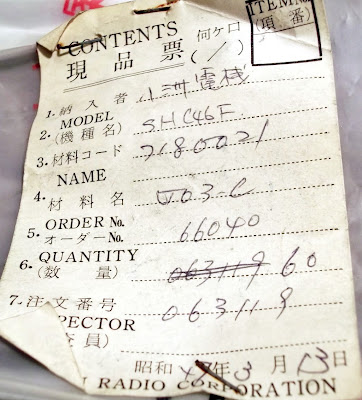 CONTENTS
ITEM No.
(項番)
現品票 何ケ口
( / )
1. 納入者 小洲電機
MODEL
2. (機種名) SHC46F
3. 材料コード 7180021
NAME
4. 材料名 V03-C
ORDER No.
5. オーダーNo. 66040
QUANTITY
6. (数量) 063119 60
7. 注文番号 063119
SPECTOR
査員)
昭和 年 3月13日
RADIO CORPORATION